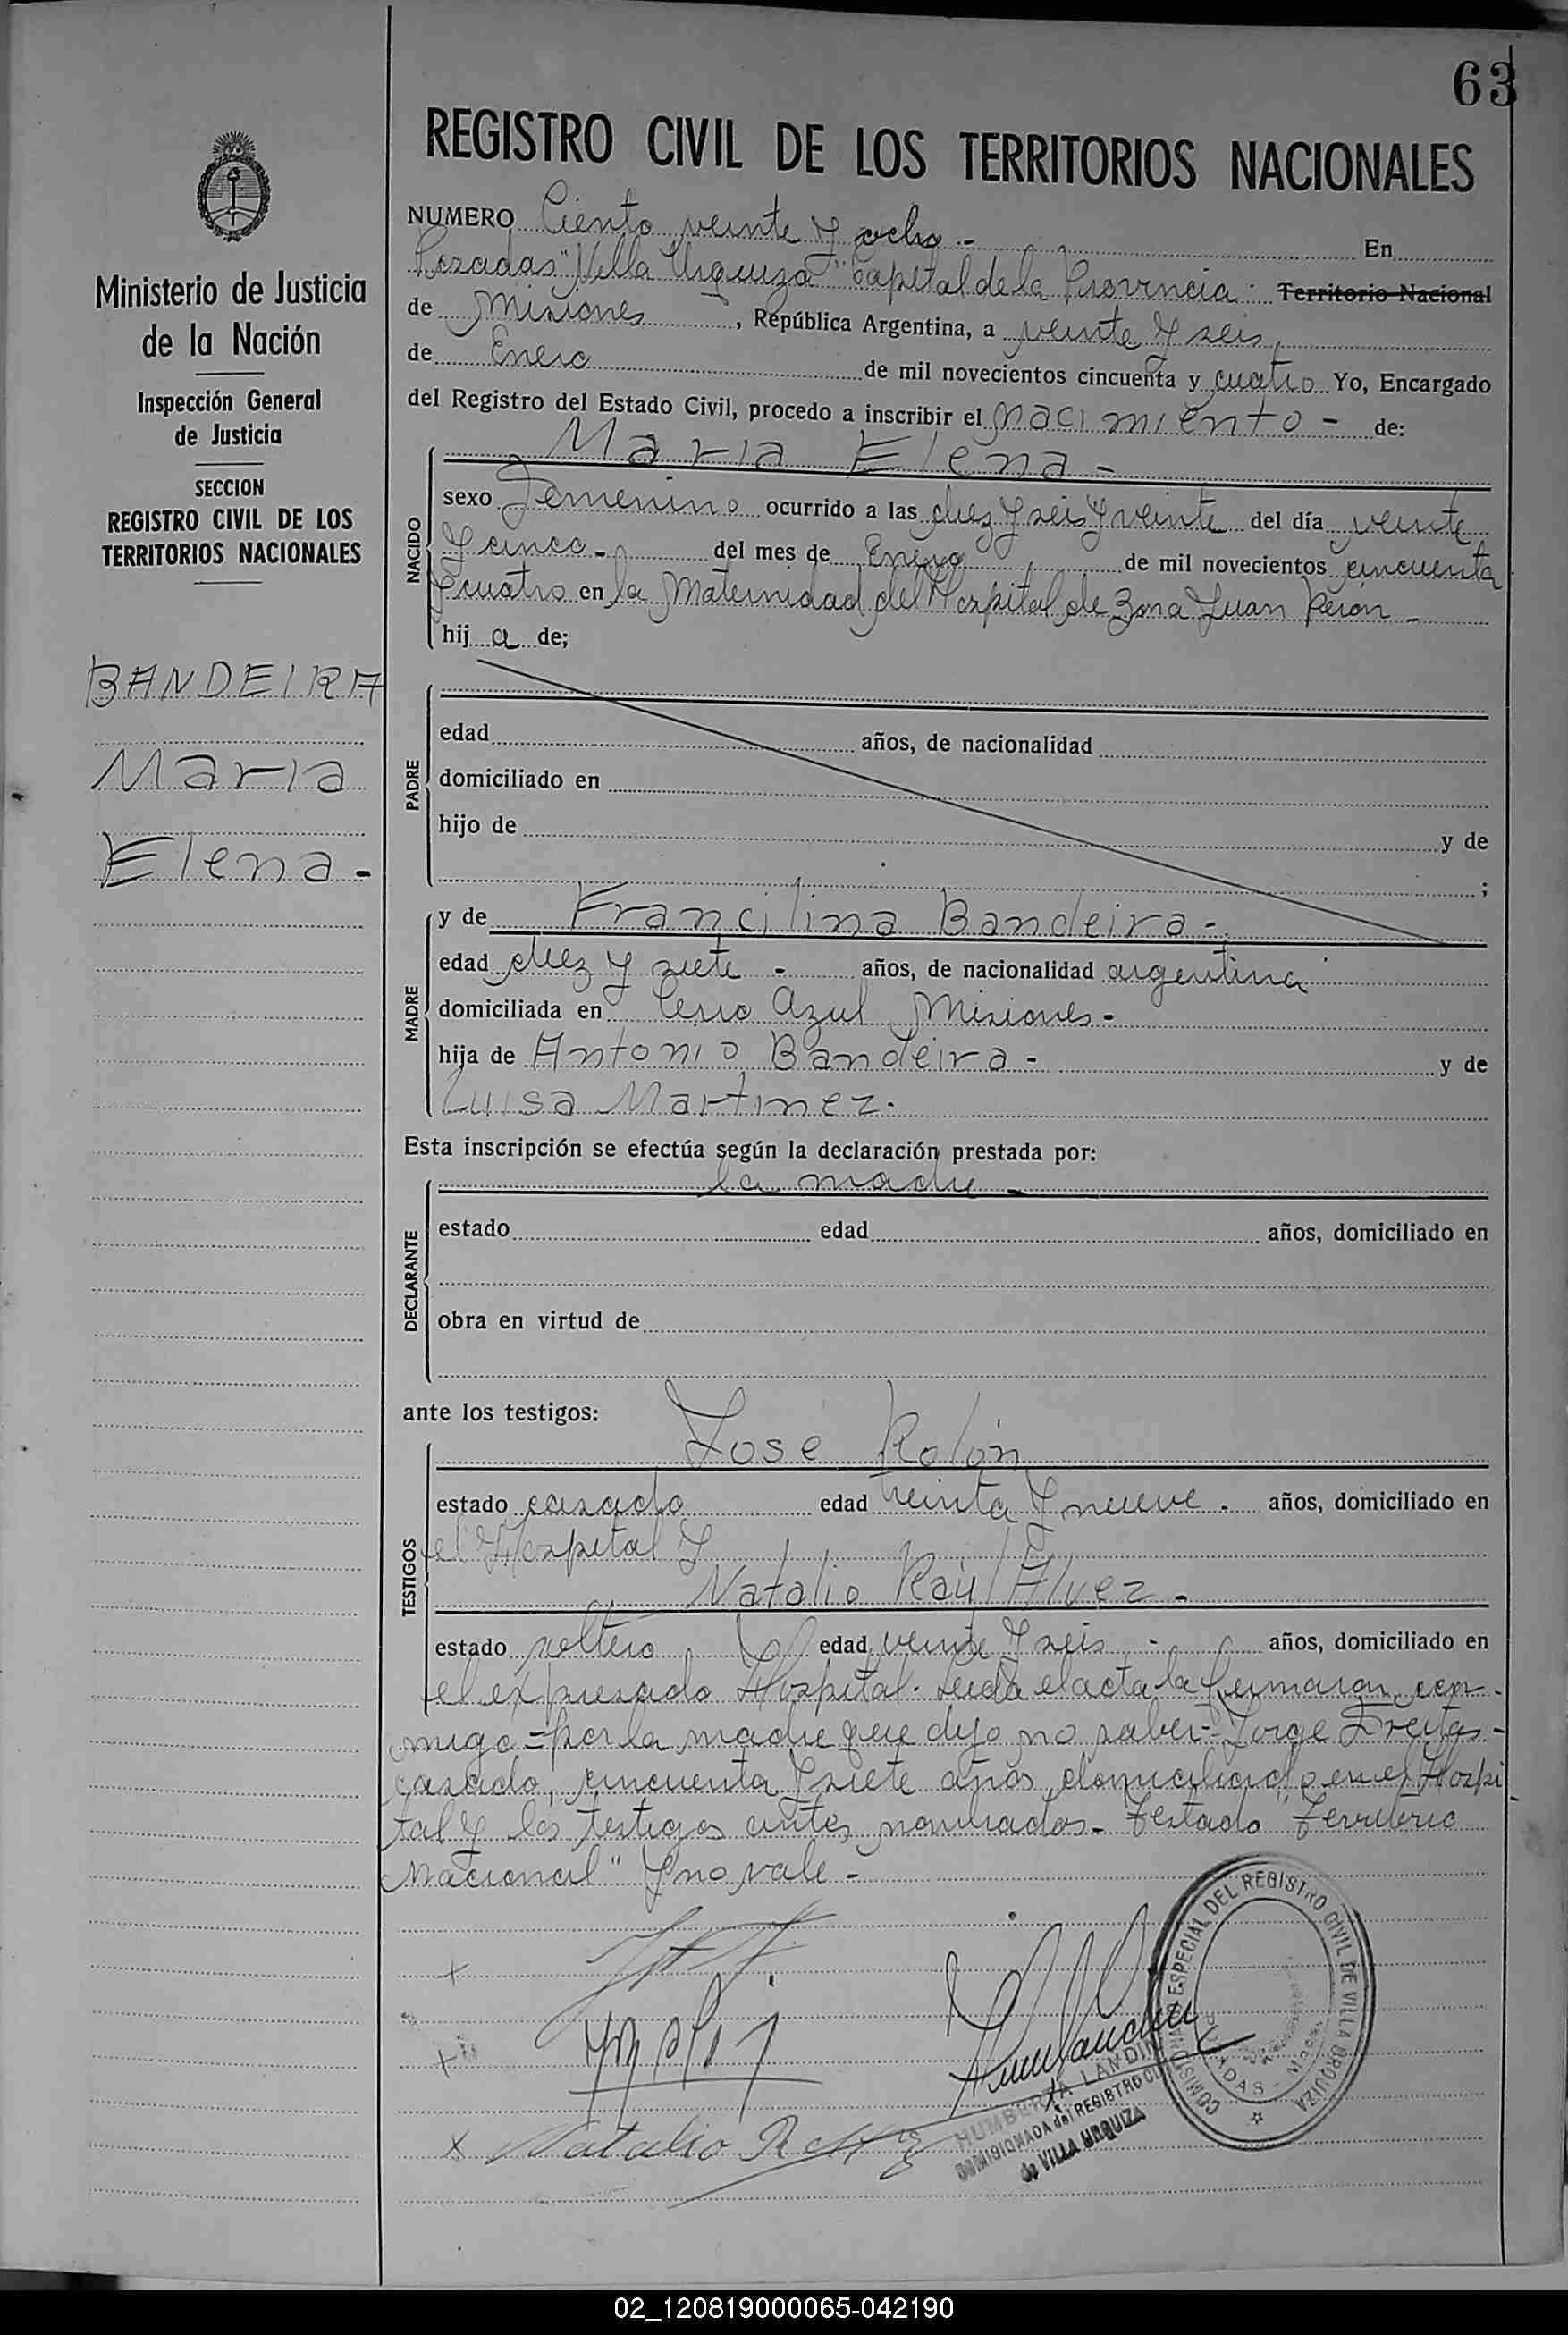 63
REGISTRO CIVIL DE LOS TERRITORIOS NACIONALES
Ministerio de Justicia
de la Nación
Inspección General
de Justicia
SECCION
REGISTRO CIVIL DE LOS
TERRITORIOS NACIONALES
BANDEIRA
Maria
Elena -
NUMERO Ciento veinte y ocho - En
Posadas "Villa Urquiza" Capital de la Provincia Territorio Nacional
de Misiones, República Argentina, a veinte y seis
de Enero de mil novecientos cincuenta y cuatro Yo, Encargado
del Registro del Estado Civil, procedo a inscribir el nacimiento - de:
Maria Elena -
NACIDO
sexo Femenino ocurrido a las diez y seis y veinte del día veinte
y cinco - del mes de Enero de mil novecientos cincuenta
y cuatro en la Maternidad del Hospital de Zona Juan Perón -
hij a de;
PADRE
edad años, de nacionalidad
domiciliado en
hijo de y de
;
MADRE
y de Francilina Bandeira -
edad diez y siete - años, de nacionalidad argentina
domiciliada en Cerro Azul Misiones -
hija de Antonio Bandeira - y de
Luisa Martinez.
Esta inscripción se efectúa según la declaración prestada por:
la madre -
DECLARANTE
estado edad años, domiciliado en
obra en virtud de
ante los testigos:
José Rolón
TESTIGOS
estado casado edad treinta y nueve - años, domiciliado en
el Hospital y
Natalio Raúl Alvez -
estado soltero edad veinte y seis - años, domiciliado en
el expresado Hospital. Leida el acta la firmaron con-
migo = por la madre que dijo no saber - Jorge Freitas -
casado, cincuenta y siete años, domiciliado en el Hospi
tal y los testigos antes nombrados - Testado "Territorio
Nacional" y no vale -
Natalio R
HUMBERTA LANDI
COMISIONADA del REGISTRO CI
de VILLA URQUIZA
COMISIONADA ESPECIAL DEL REGISTRO CIVIL DE VILLA URQUIZA
02_120819000065-042190